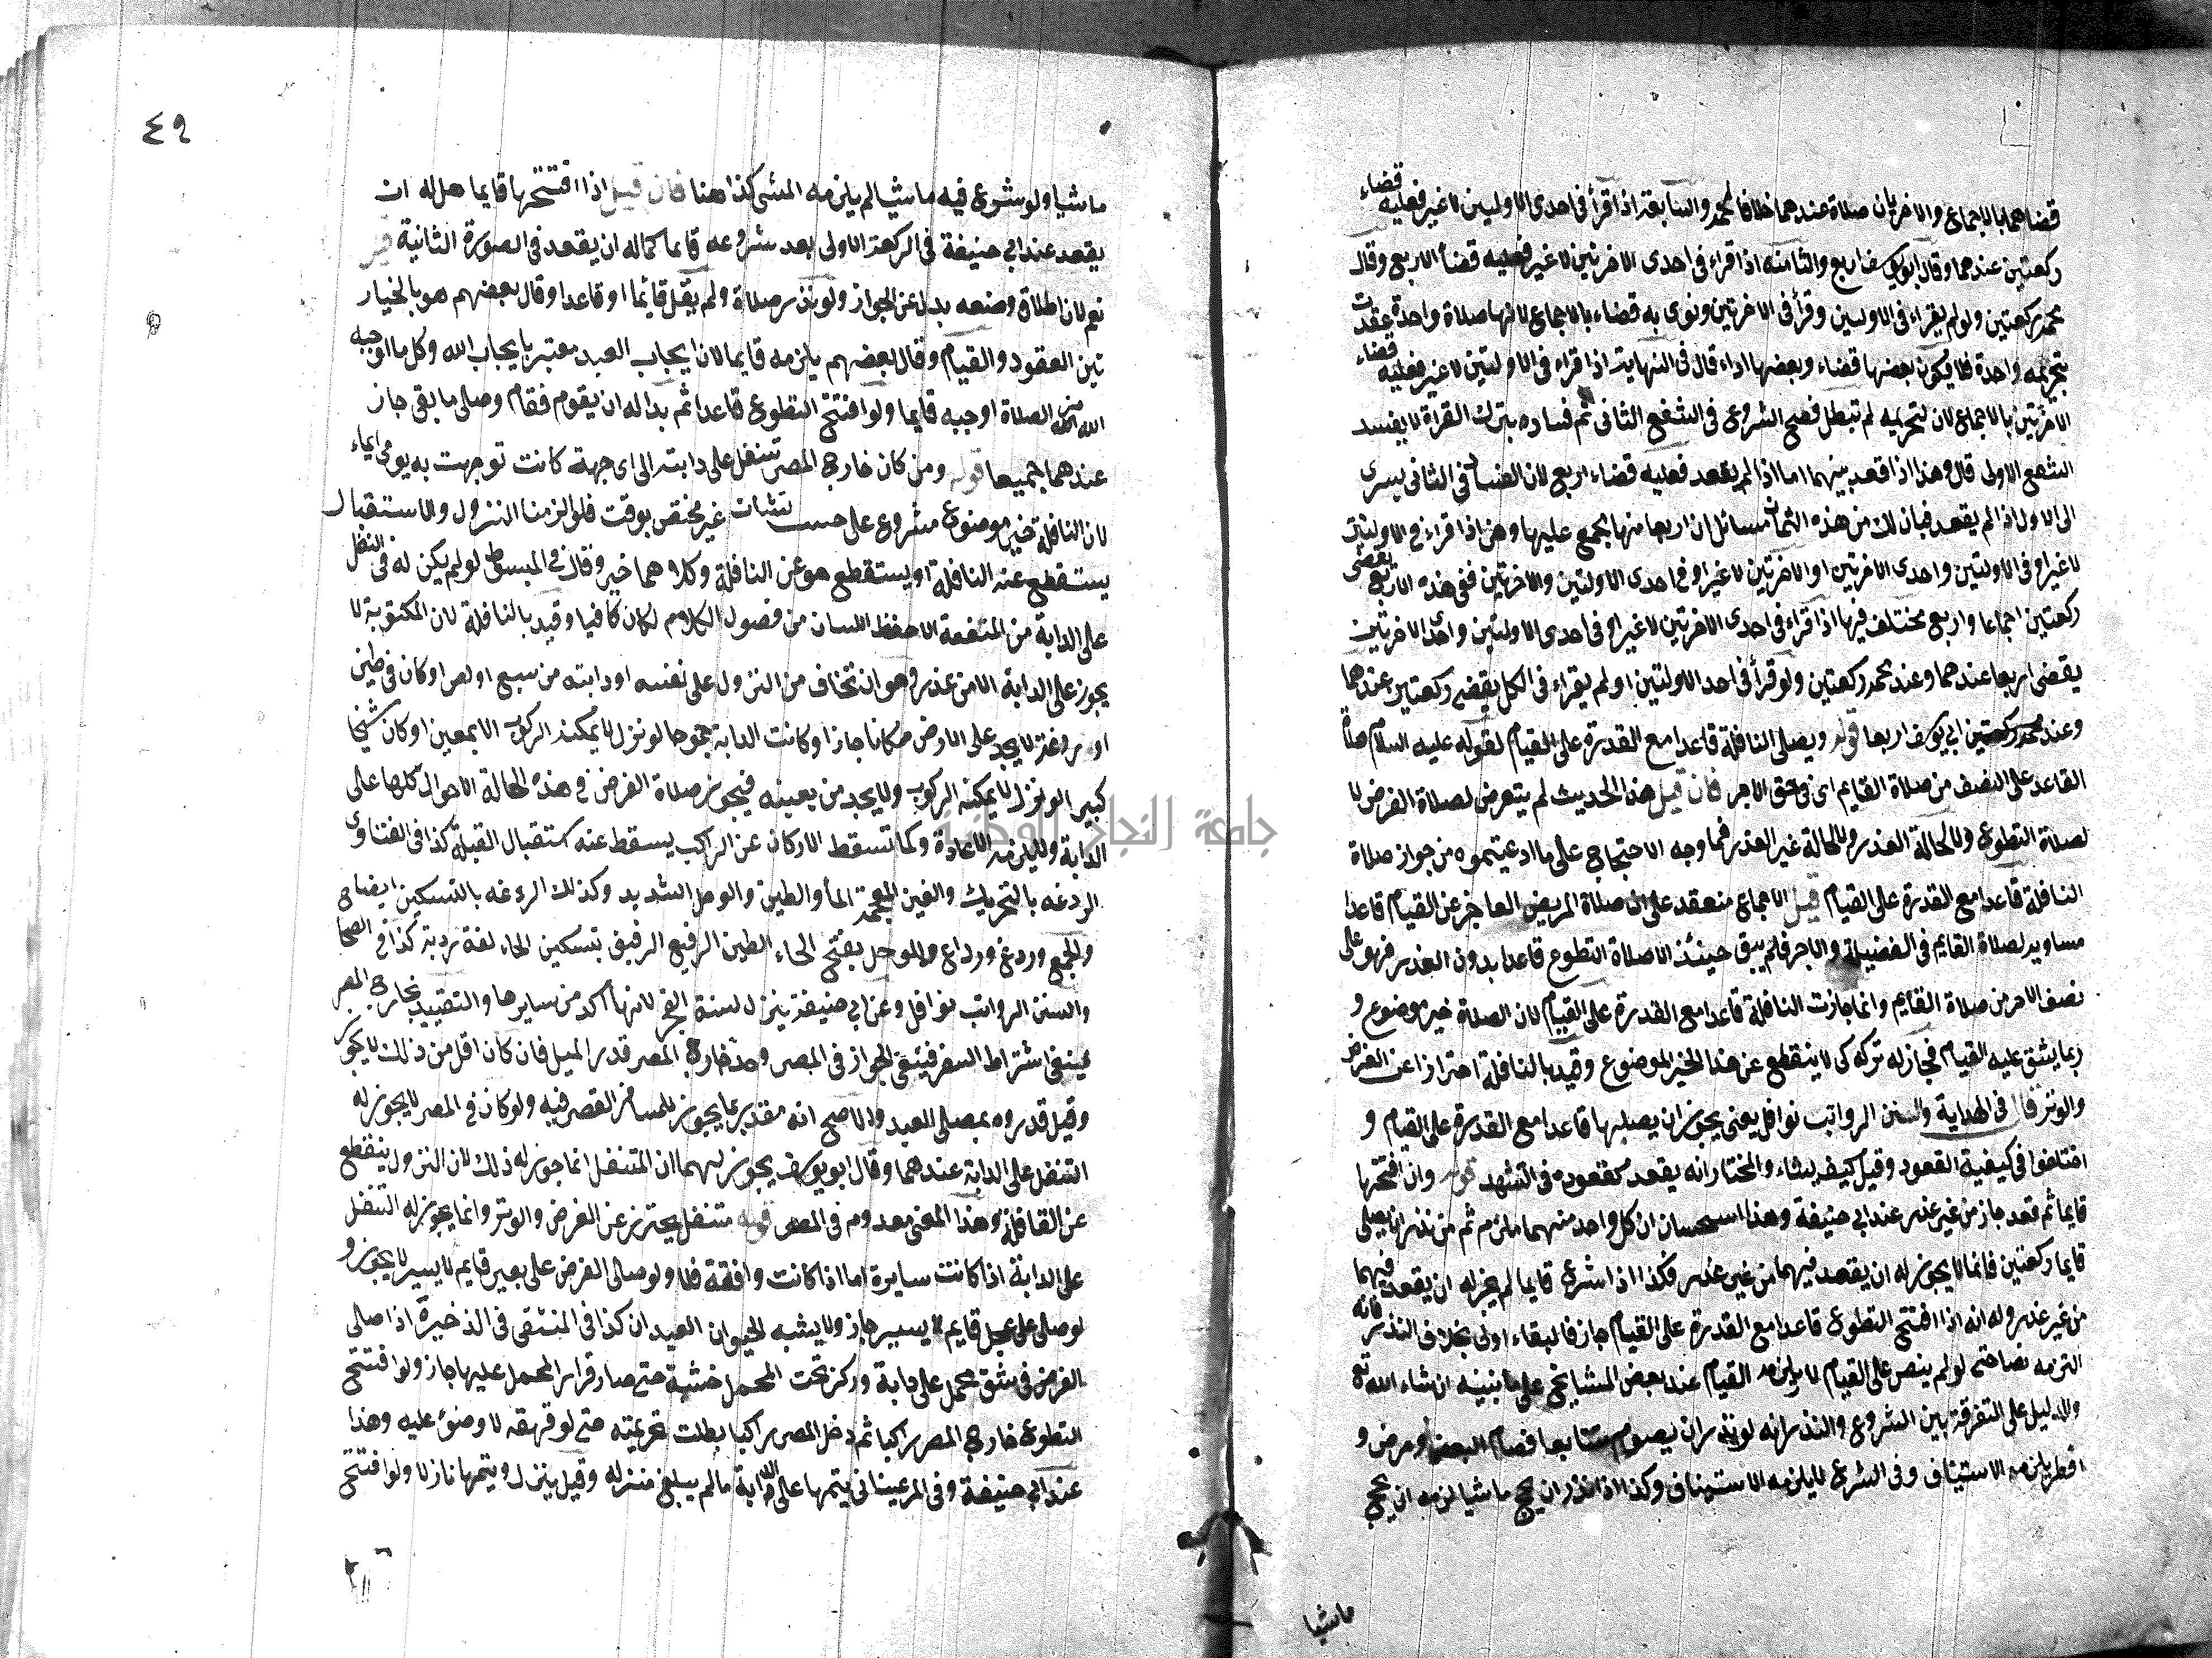 قضاهما بالاجماع والاخريان صلاة عندهما خلافا لمحمد والسابعة اذا قرأ في احدى الاوليين لا غير فعليه قضاء
ركعتين عندهما وقال ابو يوسف اربع والثامنة اذا قراء في احدى الاخرتين لا غير فعليه قضا الاربع وقال
محمد ركعتين ولو لم يقراء في الاوليين وقرأ في الاخرتين ونوى به قضاء بالاجماع لانها صلاة واحدة عقدت
بتحريمه واحدة فلا يكون بعضها قضاء وبعضها اداء قال في النهاية اذا قراء في الاولتين لا غير فعليه قضاء
الاخرتين بالاجماع لان التحريمه لم تبطل فصح الشروع في الشفع الثاني ثم فساده بترك القراة لا يفسد
الشفع الاولى قال وهذا اذا قعد بينهما اما اذا لم يقعد فعليه قضاء اربع لان الفساد في الثاني يسرى
الى الاول اذا لم يقعد فبان لك من هذه الثمان مسائل ان اربعا منها مجمع عليها وهن اذا قراء في الاولتين
لا غير او في الاولتين واحدى الاخرتين او الاخرتين لا غير او في احدى الاولتين والاخرتين ففي هذه الاربع يقضي
ركعتين اجماعا واربع مختلف فيها اذا قراء في احدى الاخرتين لا غير او في احدى الاولتين واحدى الاخرتين
يقضي اربعا عندهما وعند محمد ركعتين ولو قرأ في احد الاولتين او لم يقراء في الكل يقضي ركعتين عندهما
وعند ابي يوسف اربعا قوله ويصلى النافلة قاعدا مع القدرة على القيام لقوله عليه السلام صلاة
القاعد على النصف من صلاة القايم اى في حق الاجر فان قيل هذا الحديث لم يتعرض لصلاة الفرض لا
لصلاة التطوع ولا لحالة العذر ولا لحالة غير العذر فما وجه الاحتجاج على ما ادعيتموه من جواز صلاة
النافلة قاعدا مع القدرة على القيام قيل الاجماع منعقد على ان صلاة المريض العاجز عن القيام قاعدا
مساويه لصلاة القايم في الفضيلة والاجر فلم يبق حينئذ الا صلاة التطوع قاعدا بدون العذر فهو على
نصف الاجر من صلاة القايم وانما جازت النافلة قاعدا مع القدرة على القيام لان الصلاة خير موضوع و
ربما يشق عليه القيام فجاز له تركه كى لا ينقطع عن هذا الخير الموضوع وقيد بالنافلة احترازا عن الفرض
والوتر قال في الهداية والسنن الرواتب نوافل يعني يجوز ان يصليها قاعدا مع القدرة على القيام و
اختلفوا في كيفية القعود وقيل كيف يشاء والمختار انه يقعد كقعوده في التشهد قوله وان افتتحها
قايما ثم قعد جاز من غير عذر عند ابي حنيفة وهذا استحسان ان كل واحد منهما ملزم ثم من نذر ان يصلي
قايما ركعتين فانما لا يجوز له ان يقعد فيهما من غير عذر فكذا اذا شرع قايما لم يجز له ان يقعد فيهما
من غير عذر وله انه اذا افتتح التطوع قاعدا مع القدرة على القيام جاز فالبقاء اولى بخلاف النذر فانه
التزمه نصا حتى لو لم ينص على القيام لا يلزمه القيام عند بعض المشايخ على ما نبينه ان شاء الله تع
والدليل على التفرقة بين الشروع والنذر انه لو نذر ان يصوم متتابعا فصام البعض ومرض و
افطر يلزمه الاستيناف وفي الشرع لا يلزمه الاستيناف وكذا اذا نذر ان يحج ماشيا لزمه ان يحج
ماشيا
٤٩
ماشيا ولو شرع فيه ماشيا لم يلزمه المشى كذا هنا فان قيل اذا افتتحها قايما هل له ان
يقعد عند ابي حنيفة في الركعة الاولى بعد شروعه قايما كما له ان يقعد في الصورة الثانية
نعم لان اطلاق وضعه يدل عن الجواز ولو نذر صلاة ولم يقل قائما او قاعدا وقال بعضهم هو بالخيار
بين العقود والقيام وقال بعضهم يلزمه قايما لان ايجاب العبد معتبر بايجاب الله وكل ما اوجبه
الله من الصلاة اوجبه قايما ولو افتتح التطوع قاعدا ثم بدا له ان يقوم فقام وصلى ما بقى جاز
عندهما جميعا قوله ومن كان خارج المصر تنفل على دابته الى اى جهة كانت توجهت به يومى ايماء
لان النافلة خير موضوع مشروع على حسب غير مختص بوقت فلو الزمنا النزول والاستقبال
يستقطع عنه النافلة او يستقطع هو عن النافلة وكلاهما خير وقال في المبسوط لو لم يكن له في النفل
على الدابة من المنفعة الا حفظ اللسان من فضول الكلام لكان كافيا وقيد بالنافلة لان المكتوبة لا
يجوز على الدابة الا من عذر وهو ان يخاف من النزول على نفسه او دابته من سبع او لص او كان في طين
او ردغة لا يجد على الارض مكانا جازا وكانت الدابة جموحا لو نزل لا يمكنه الركوب الا بمعين او كان شيخا
كبير الو نزل لا يمكنه الركوب ولا يجد من يعينه فيجوز صلاة الفرض في هذه الحالة الاحوال كلها على
الدابة ولا يلزمه الاعادة وكما تسقط الاركان عن الراكب يسقط عنه استقبال القبلة كذا في الفتاوى
الردغه بالتحريك والغين المعجمة الماء والطين والوحل الشديد وكذلك الردغه بالتسكين ايضا
والجمع وردغ ورداغ والموحل بفتح الحاء الطين الرقيع الرقيق بتسكين الحاء لغة ردية كذا في الصحا
والسنن الرواتب نوافل وعن ابي حنيفة ينزل لسنة الفجر لانها آكد من سايرها والتقييد بخارج المصر
ينفى اشتراط السفر فينفى الجواز في المصر وحد خارج المصر قدر الميل فان كان اقل من ذلك لا يجوز
وقيل قدروه بمصلى العيد والاصح انه مقدر بما يجوز للمسافر القصر فيه ولو كان في المصر لا يجوز له
التنفل على الدابة عندهما وقال ابو يوسف يجوز لهما ان المتنفل انما جوز له ذلك لان النزول ينقطع
عن القافلة وهذا المعنى معدوم في المصر قوله متنفل يحترز عن الفرض والوتر وانما يجوز له التنفل
على الدابة اذا كانت سايرة اما اذا كانت واقفة فلا ولو صلى الفرض على بعير قايم لا يسير لا يجوز و
لو صلى على عجل قايم لا يسير جاز ولا يشبه الحيوان العيدان كذا في المنتقى في الذخيرة اذا صلى
الفرض في شق محمل على دابة وركز تحت المحمل خشبة حتى صار قرار المحمل عليها جاز ولو افتتح
التطوع خارج المصر راكبا ثم دخل المصر راكبا بطلت تحريمته حتى لو قهقه لا وضوء عليه وهذا
عند ابي حنيفة وفي المرغيناني يتمها على الدابة ما لم يبلغ منزله وقيل ينزل ويتمها نازلا ولو افتتح
جامعة النجاح الوطنية